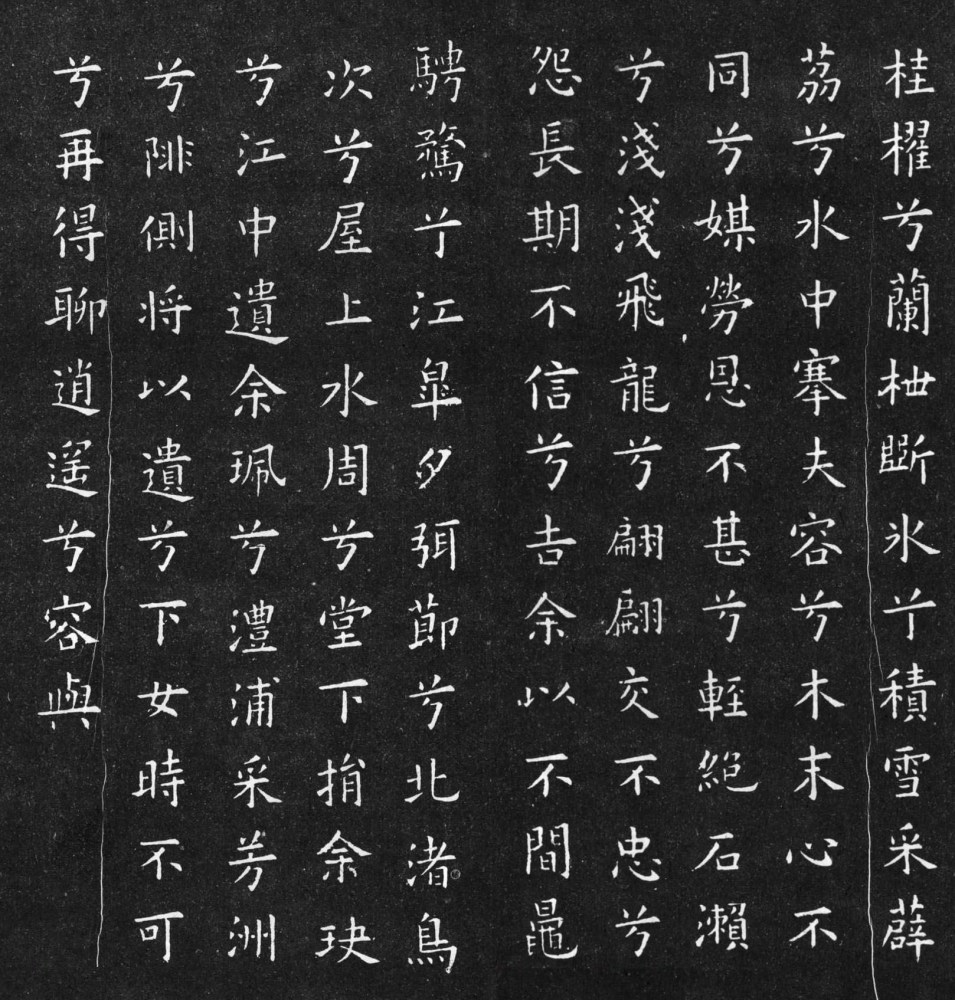 桂櫂兮蘭枻斲氷兮積雪采薜
荔兮水中搴夫容兮木末心不
同兮媒勞恩不甚兮輕絕石瀨
兮淺淺飛龍兮翩翩交不忠兮
怨長期不信兮告余以不間鼂
騁騖兮江皋夕弭節兮北渚鳥
次兮屋上水周兮堂下捐余玦
兮江中遺余珮兮澧浦采芳洲
兮陫側将以遺兮下女時不可
兮再得聊逍遙兮容與